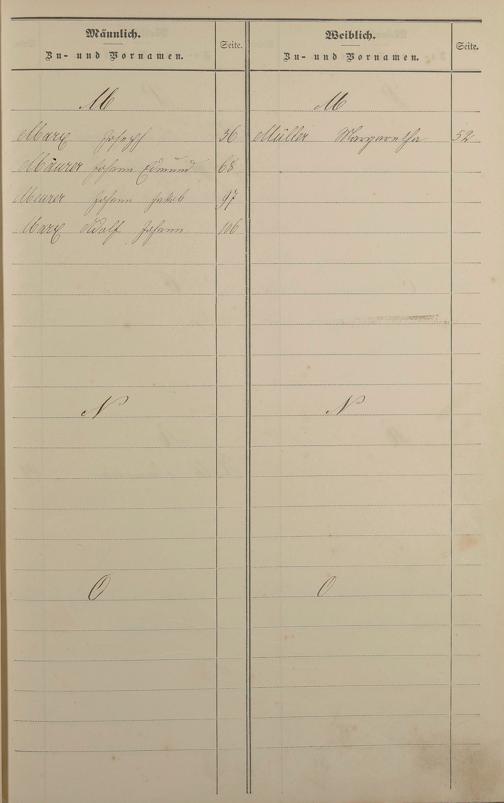 Männlich.
Zu- und Vornamen.
Seite.
M
Marx Joseph 36
Mäurer Johann Edmund 68
Meurer Johann Jakob 97
Marx Adolf Johann 106
N
O
Weiblich.
Zu- und Vornamen.
Seite.
M
Müller Margaretha 52
N
O